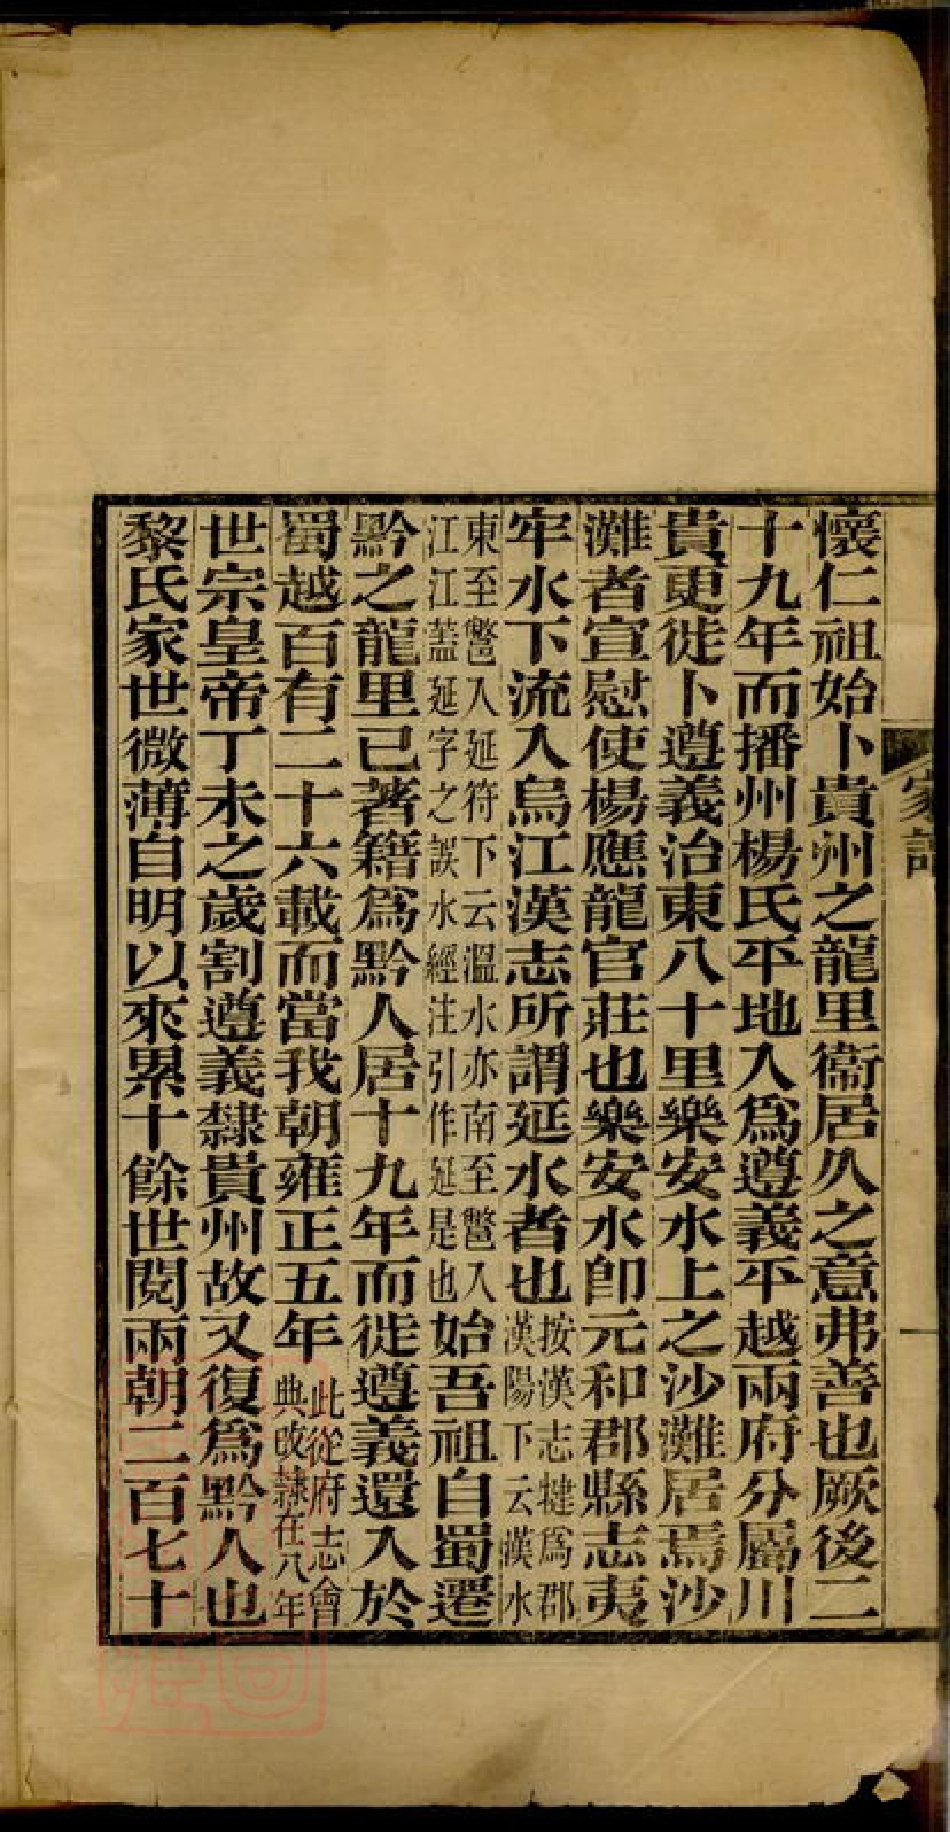 家譜
一
懷仁祖始卜貴州之龍里衞居久之意弗善也厥後二
十九年而播州楊氏平地入爲遵義平越兩府分屬川
貴更徙卜遵義治東八十里樂安水上之沙灘居焉沙
灘者宣慰使楊應龍官莊也樂安水卽元和郡縣志夷
牢水下流入烏江漢志所謂延水者也按漢志犍爲郡漢陽下云漢水
東至鄨入延符下云溫水亦南至鄨入江江蓋延字之誤水經注引作延是也始吾祖自蜀遷
黔之龍里已著籍爲黔人居十九年而徙遵義還入於
蜀越百有二十六載而當我朝雍正五年此從府志會典改隷在八年
世宗皇帝丁未之歲割遵義隸貴州故又復爲黔人也
黎氏家世微薄自明以來累十餘世閱兩朝二百七十